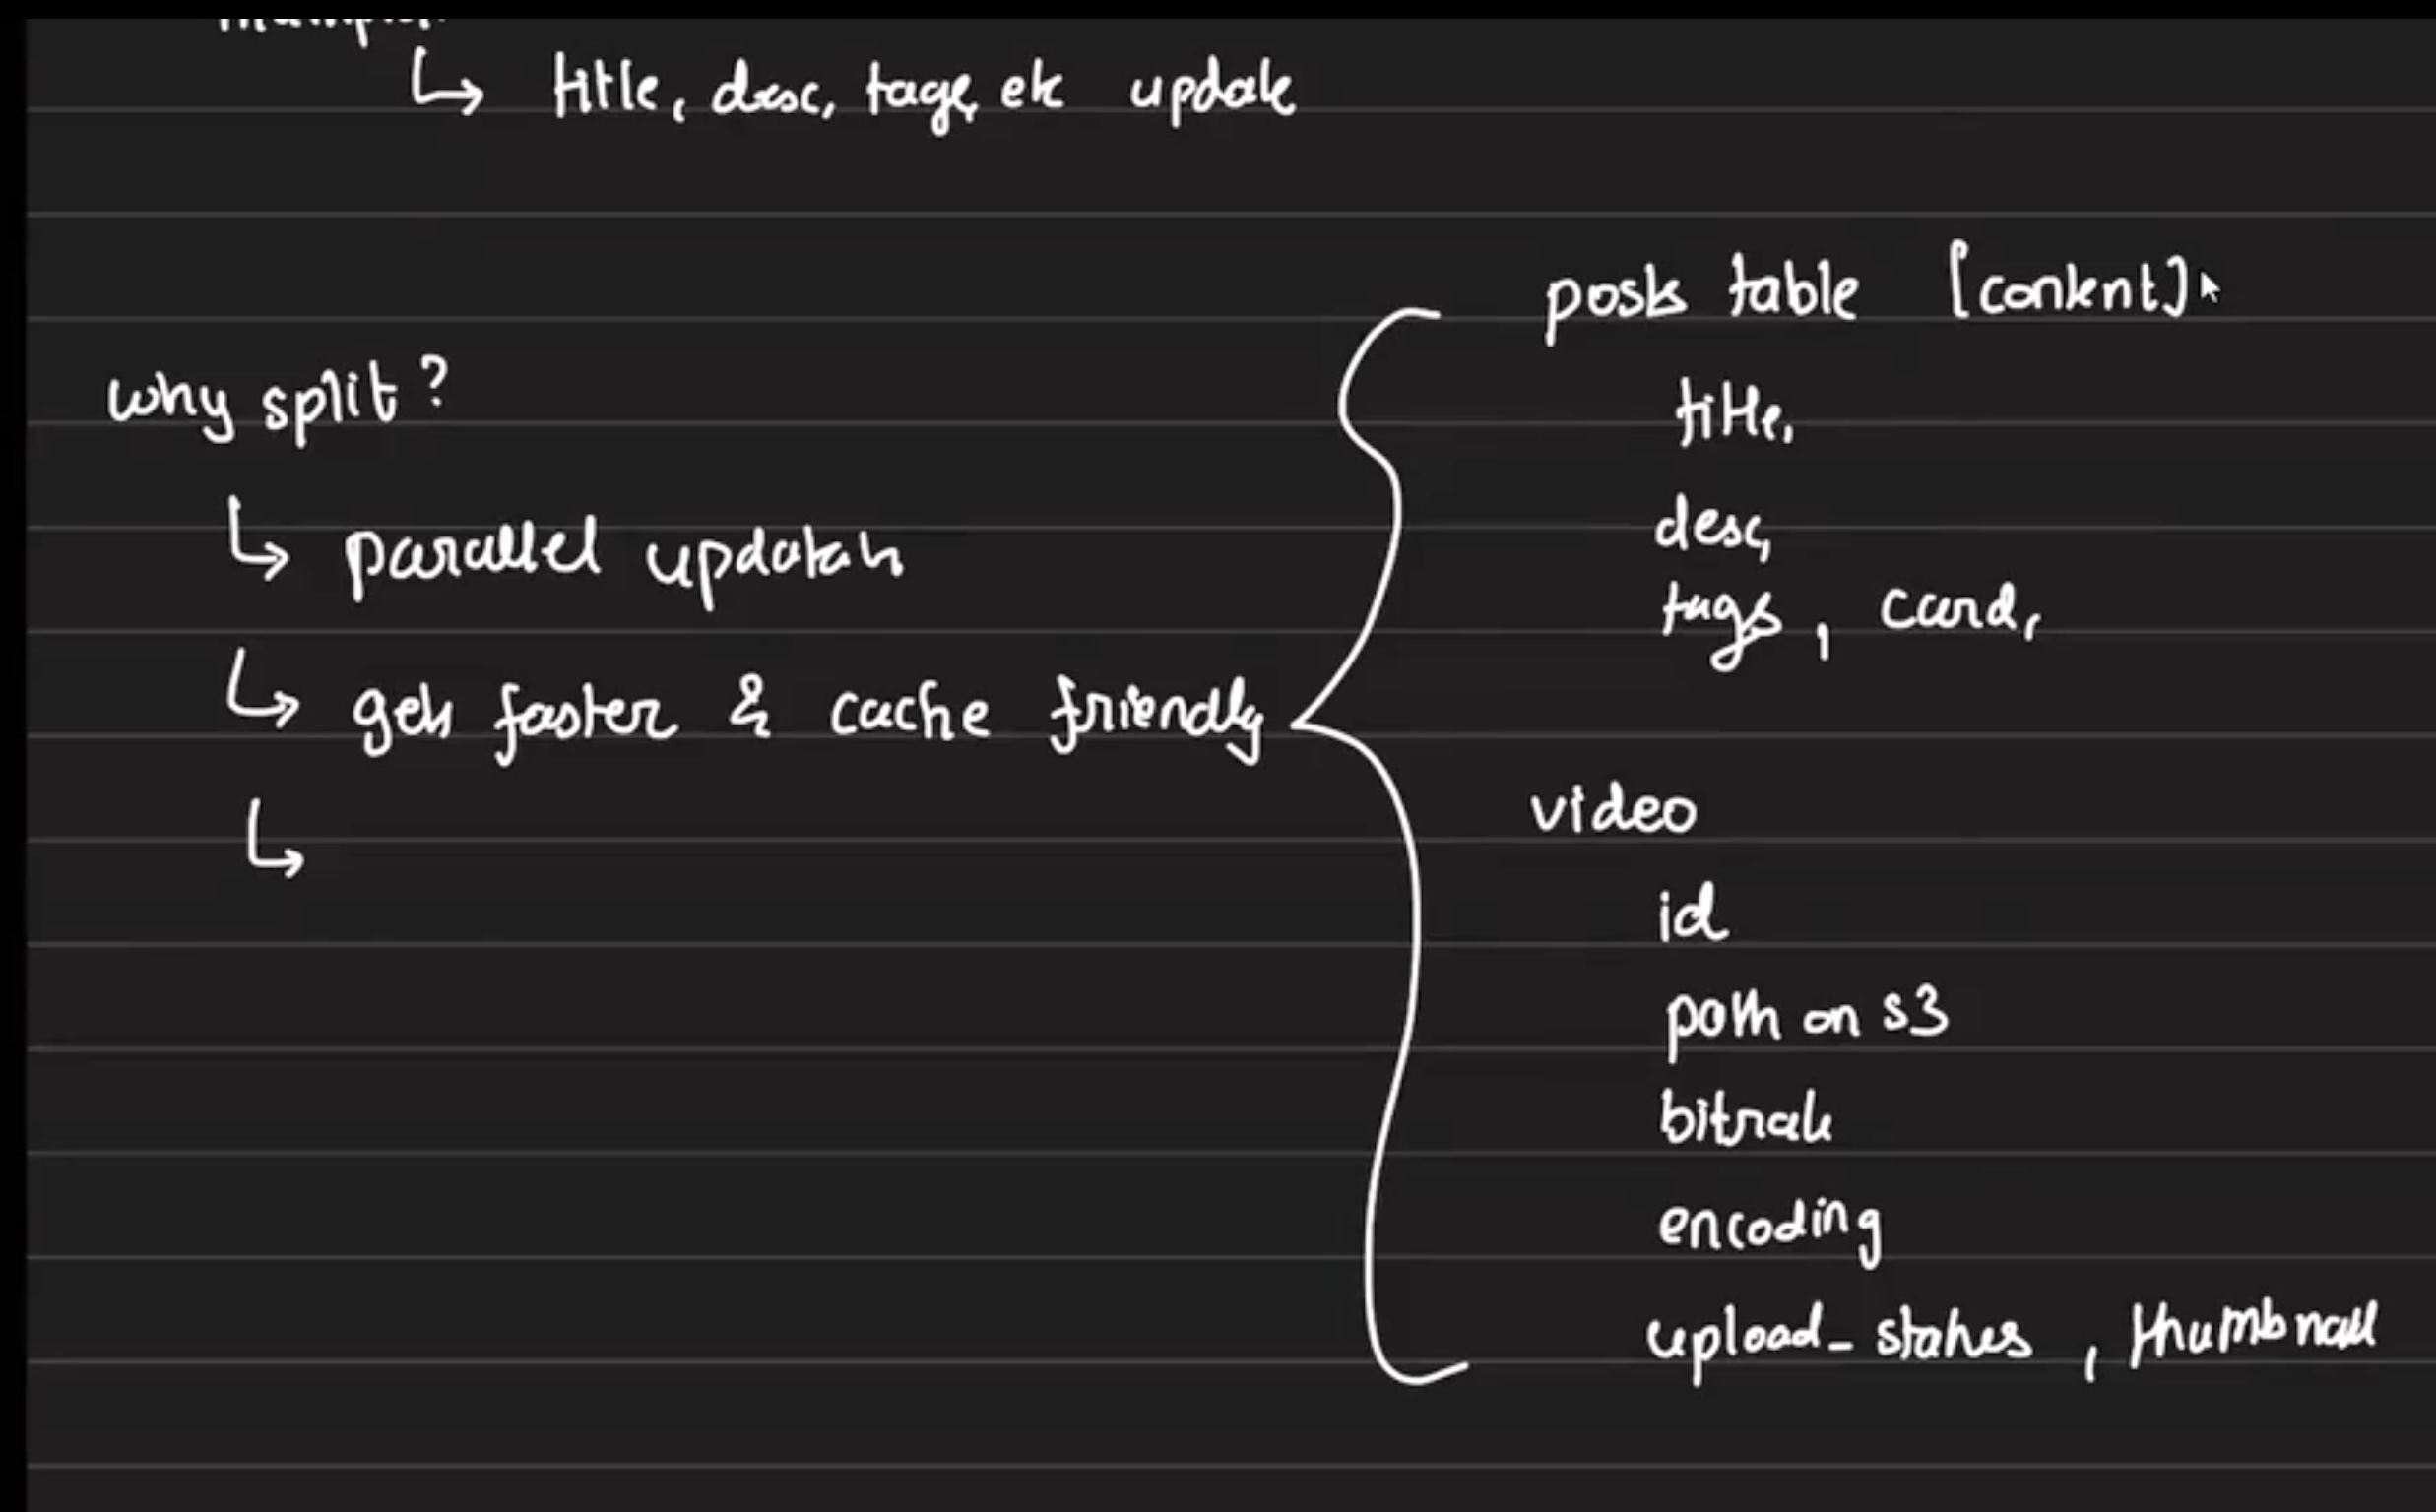 title, desc, tags, etc update
why split?
↳ parallel updates
↳ gets faster & cache friendly
↳
posts table [content]
title,
desc,
tags, card,
video
id
path on s3
bitrate
encoding
upload_status, thumbnail